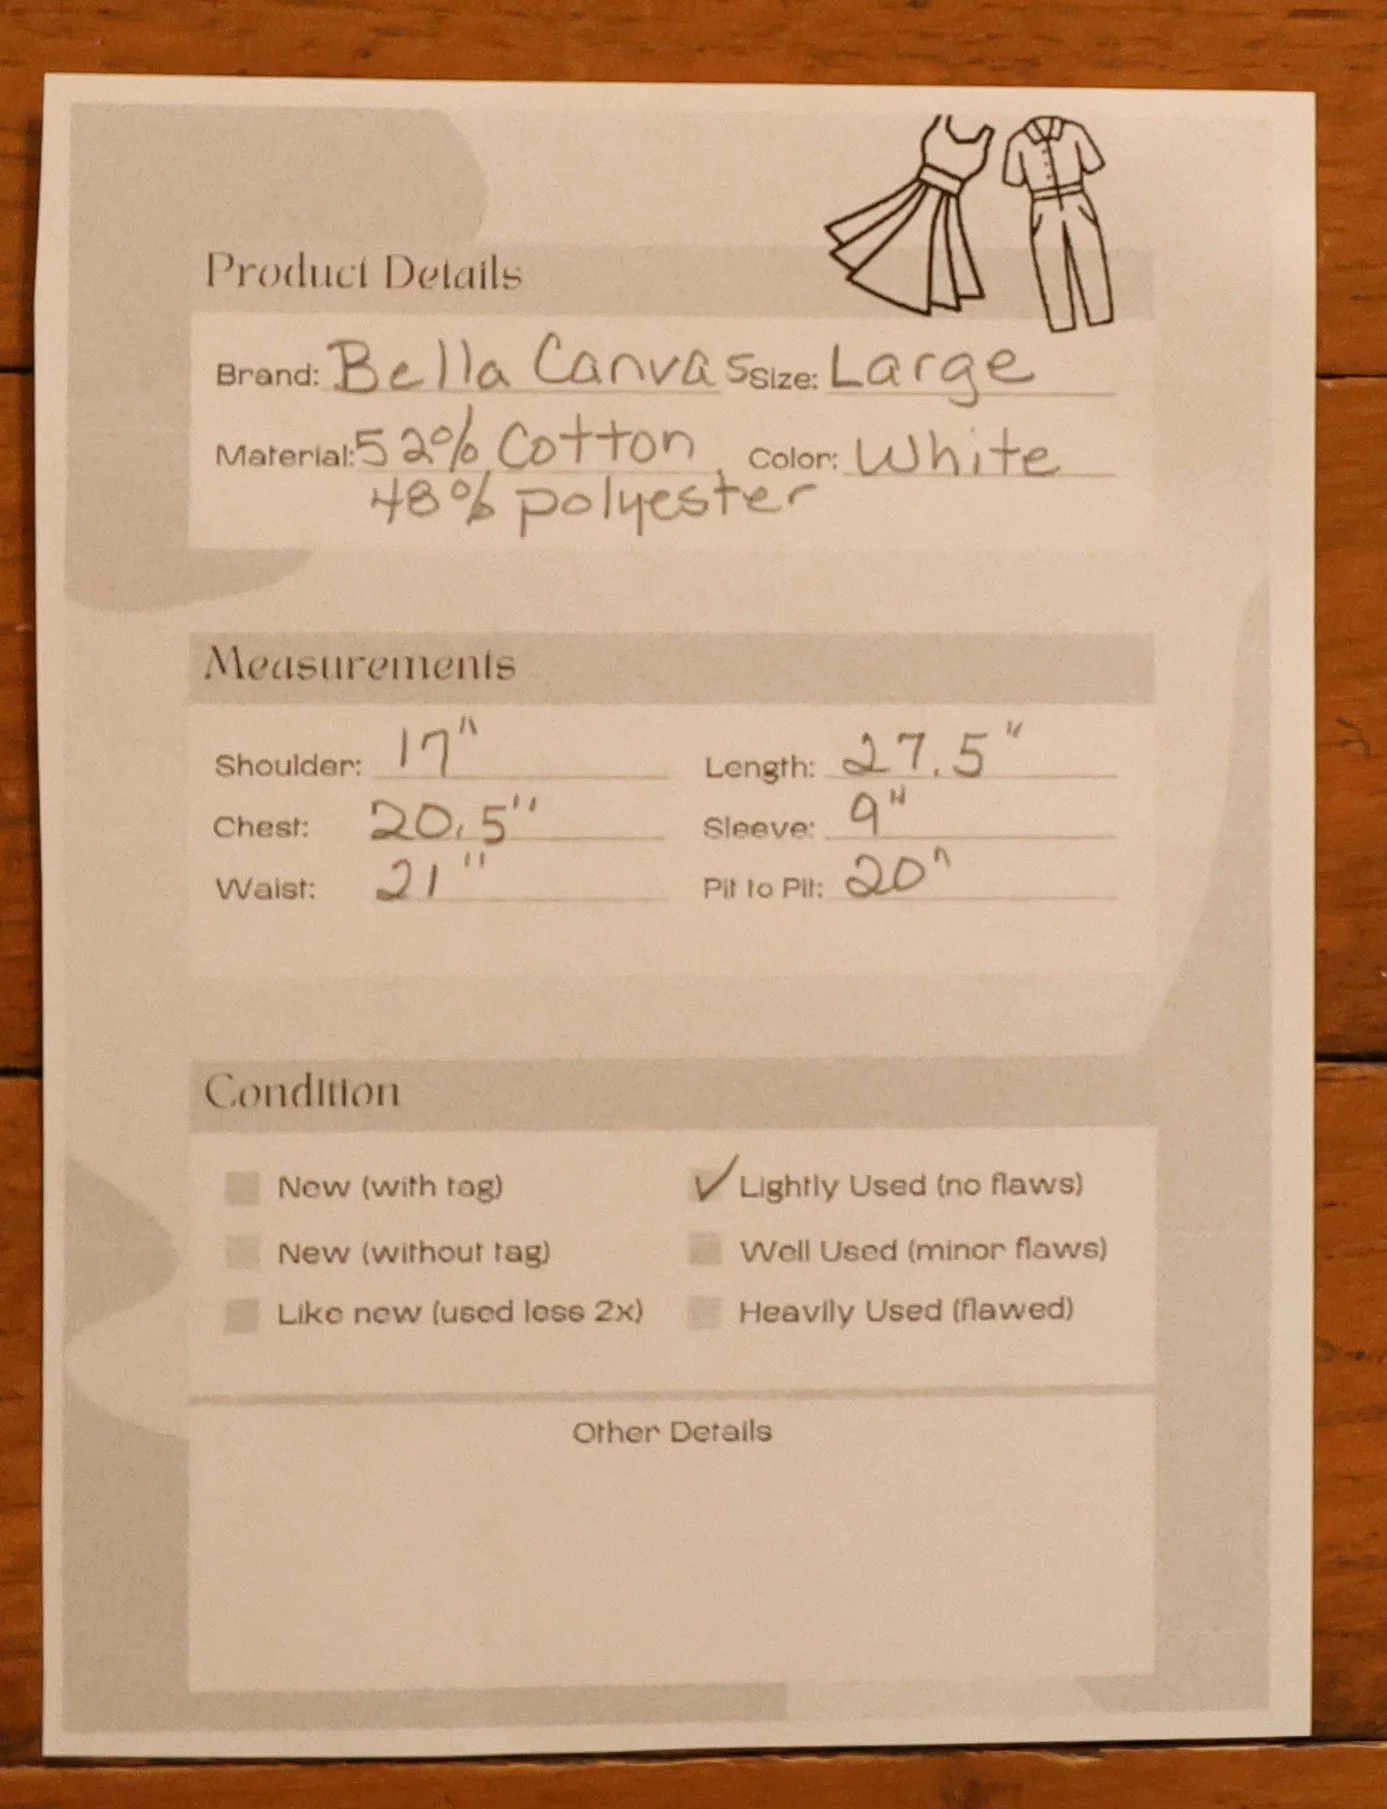 Product Details
Brand: Bella Canvas Size: Large
Material: 52% Cotton Color: White
48% polyester
Measurements
Shoulder: 17" Length: 27.5"
Chest: 20.5" Sleeve: 9"
Waist: 21" Pit to Pit: 20"
Condition
New (with tag) ✓ Lightly Used (no flaws)
New (without tag) Well Used (minor flaws)
Like new (used less 2x) Heavily Used (flawed)
Other Details